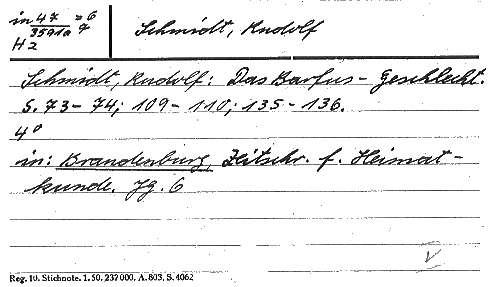 in 47 = 6
3591a 7
H 2
Schmidt, Rudolf
Schmidt, Rudolf: Das Barfus-Geschlecht.
S. 73-74; 109-110; 135-136.
4°
in: Brandenburg, Zeitschr. f. Heimat-
kunde. Jg. 6
Reg. 10. Stichnote. 1. 50. 237 000. A. 803. S. 4062